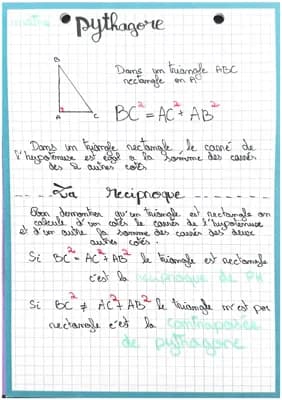 maths
pythagore
B
A
C
Dans un triangle ABC
rectangle en A
BC² = AC² + AB²
Dans un triangle rectangle, le carré de
l'hypoténuse est égal a la somme des carrés
des 2 autres cotés.
La reciproque
Pour demontrer qu'un triangle est rectangle on
calcule d'un coté le carrés de l'hypotenuse
et d'un autre la somme des carrés des deux
autres cotés.
Si BC² = AC² + AB² le triangle est rectangle
c'est la reciproque de PH
Si BC² ≠ AC² + AB² le triangle n'est pas
rectangle c'est la contraposée
de pythagore